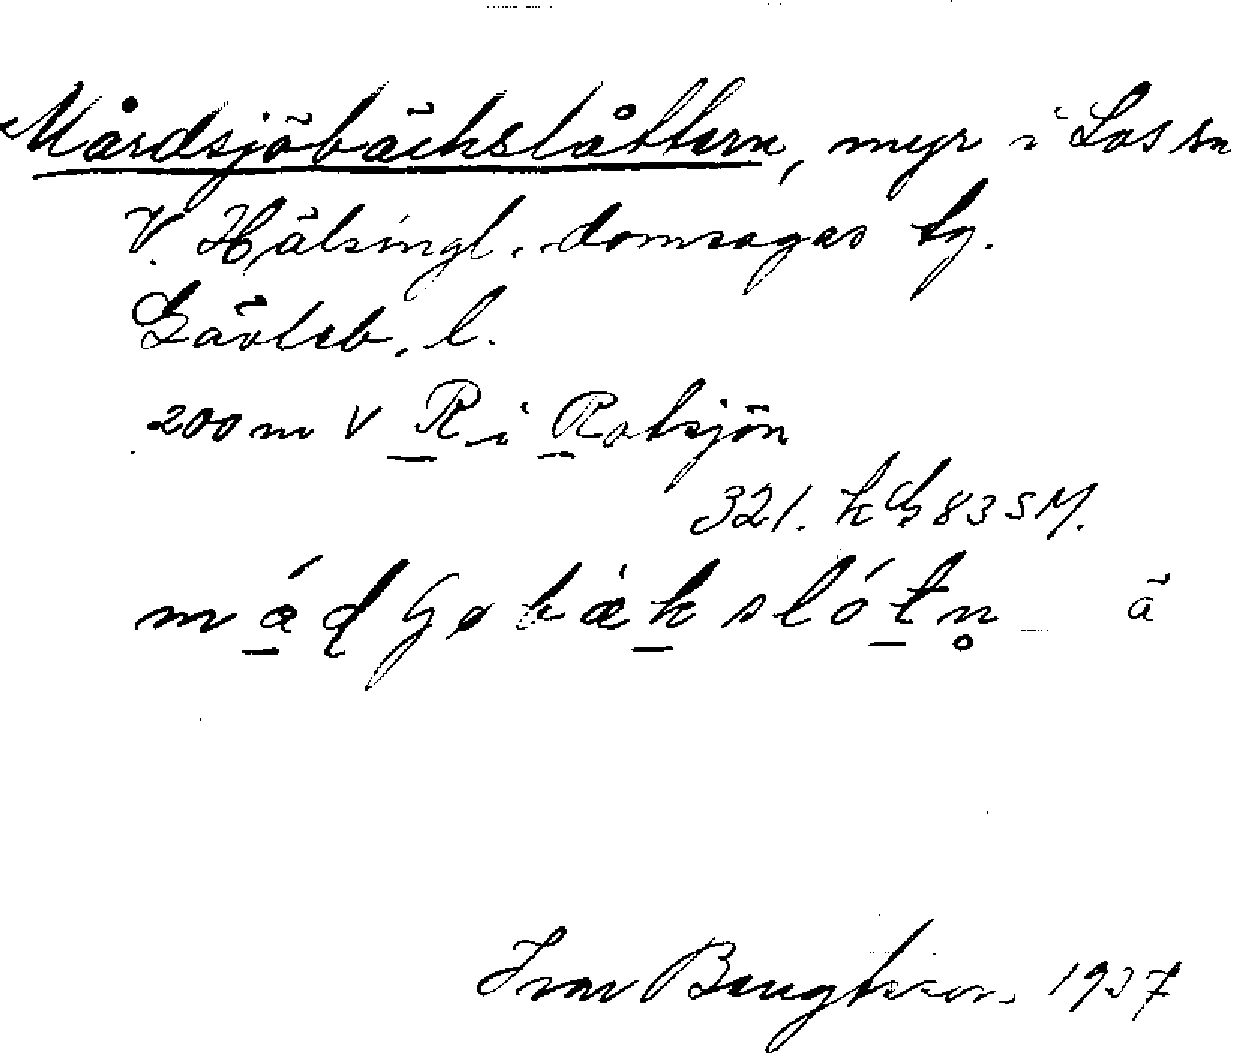 Mårdsjöbäckslåttern, myr i Los sn
V. Hälsingl. domsagas tg.
Gävleb. l.
200 m V R i Rotsjön
321. k G 83 SM.
ä
Ivar Bengtsson 1937